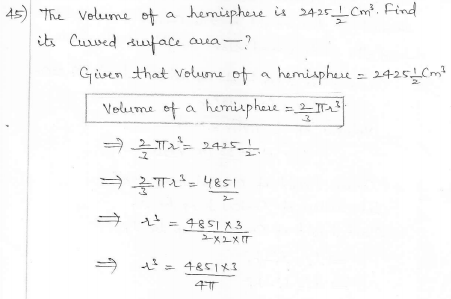 45) The volume of a hemisphere is 2425 1/2 Cm³. Find
its Curved surface area —?
Given that volume of a hemisphere = 2425 1/2 Cm³
Volume of a hemisphere = 2/3 πr³
⇒ 2/3 πr³ = 2425 1/2.
⇒ 2/3 πr³ = 4851/2
⇒ r³ = 4851×3/2×2×π
⇒ r³ = 4851×3/4π